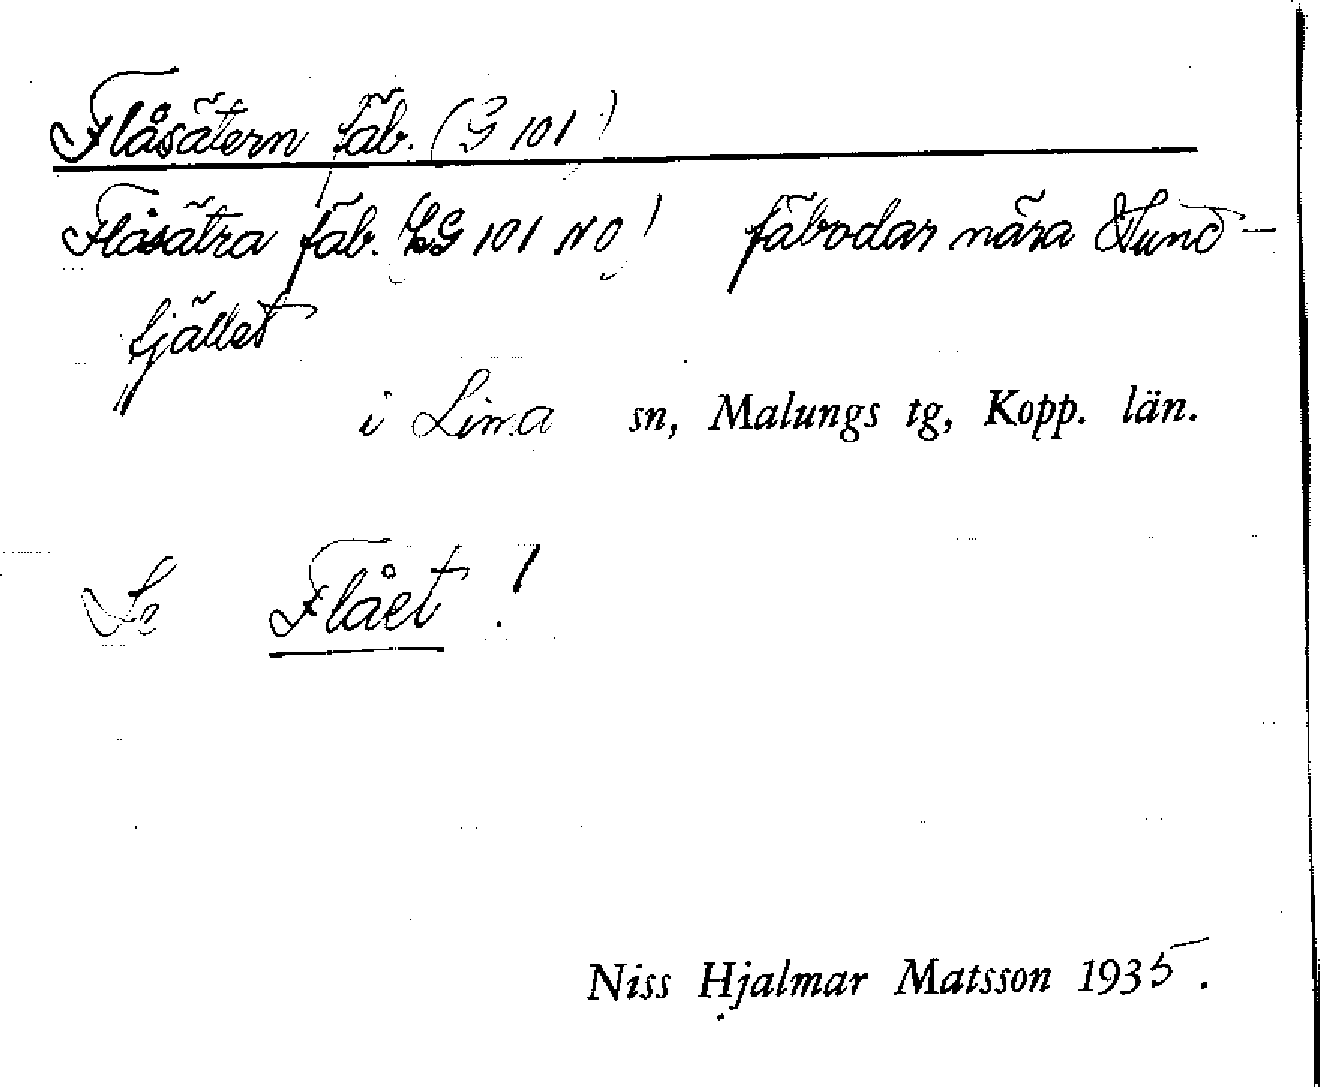 Flåsätern fäb. (G 101)
Flåsätra fäb. (LG 101 NO) fäbodar nära Sund-
fjället
i Lima sn, Malungs tg, Kopp. län.
Se Flået!
Niss Hjalmar Matsson 1935.